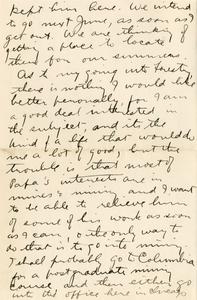 kept him here. We intend
to go next June, as soon as I
get out. We are thinking of
getting a place to locate
there for our summers.
As to my going into Forestry
there is nothing I would like
better personally, for I am
a good deal interested in
the subject, and it's the
kind of a life that would do
me a lot of good, but the
trouble is that most of
Papa's interests are in
mines & mining and I want
to be able to relieve him
of some of his work as soon
as I can, & the only way to
do that is to go into mining.
I shall probably go to Columbia
for a postgraduate mining
course and then either go
into the office here in